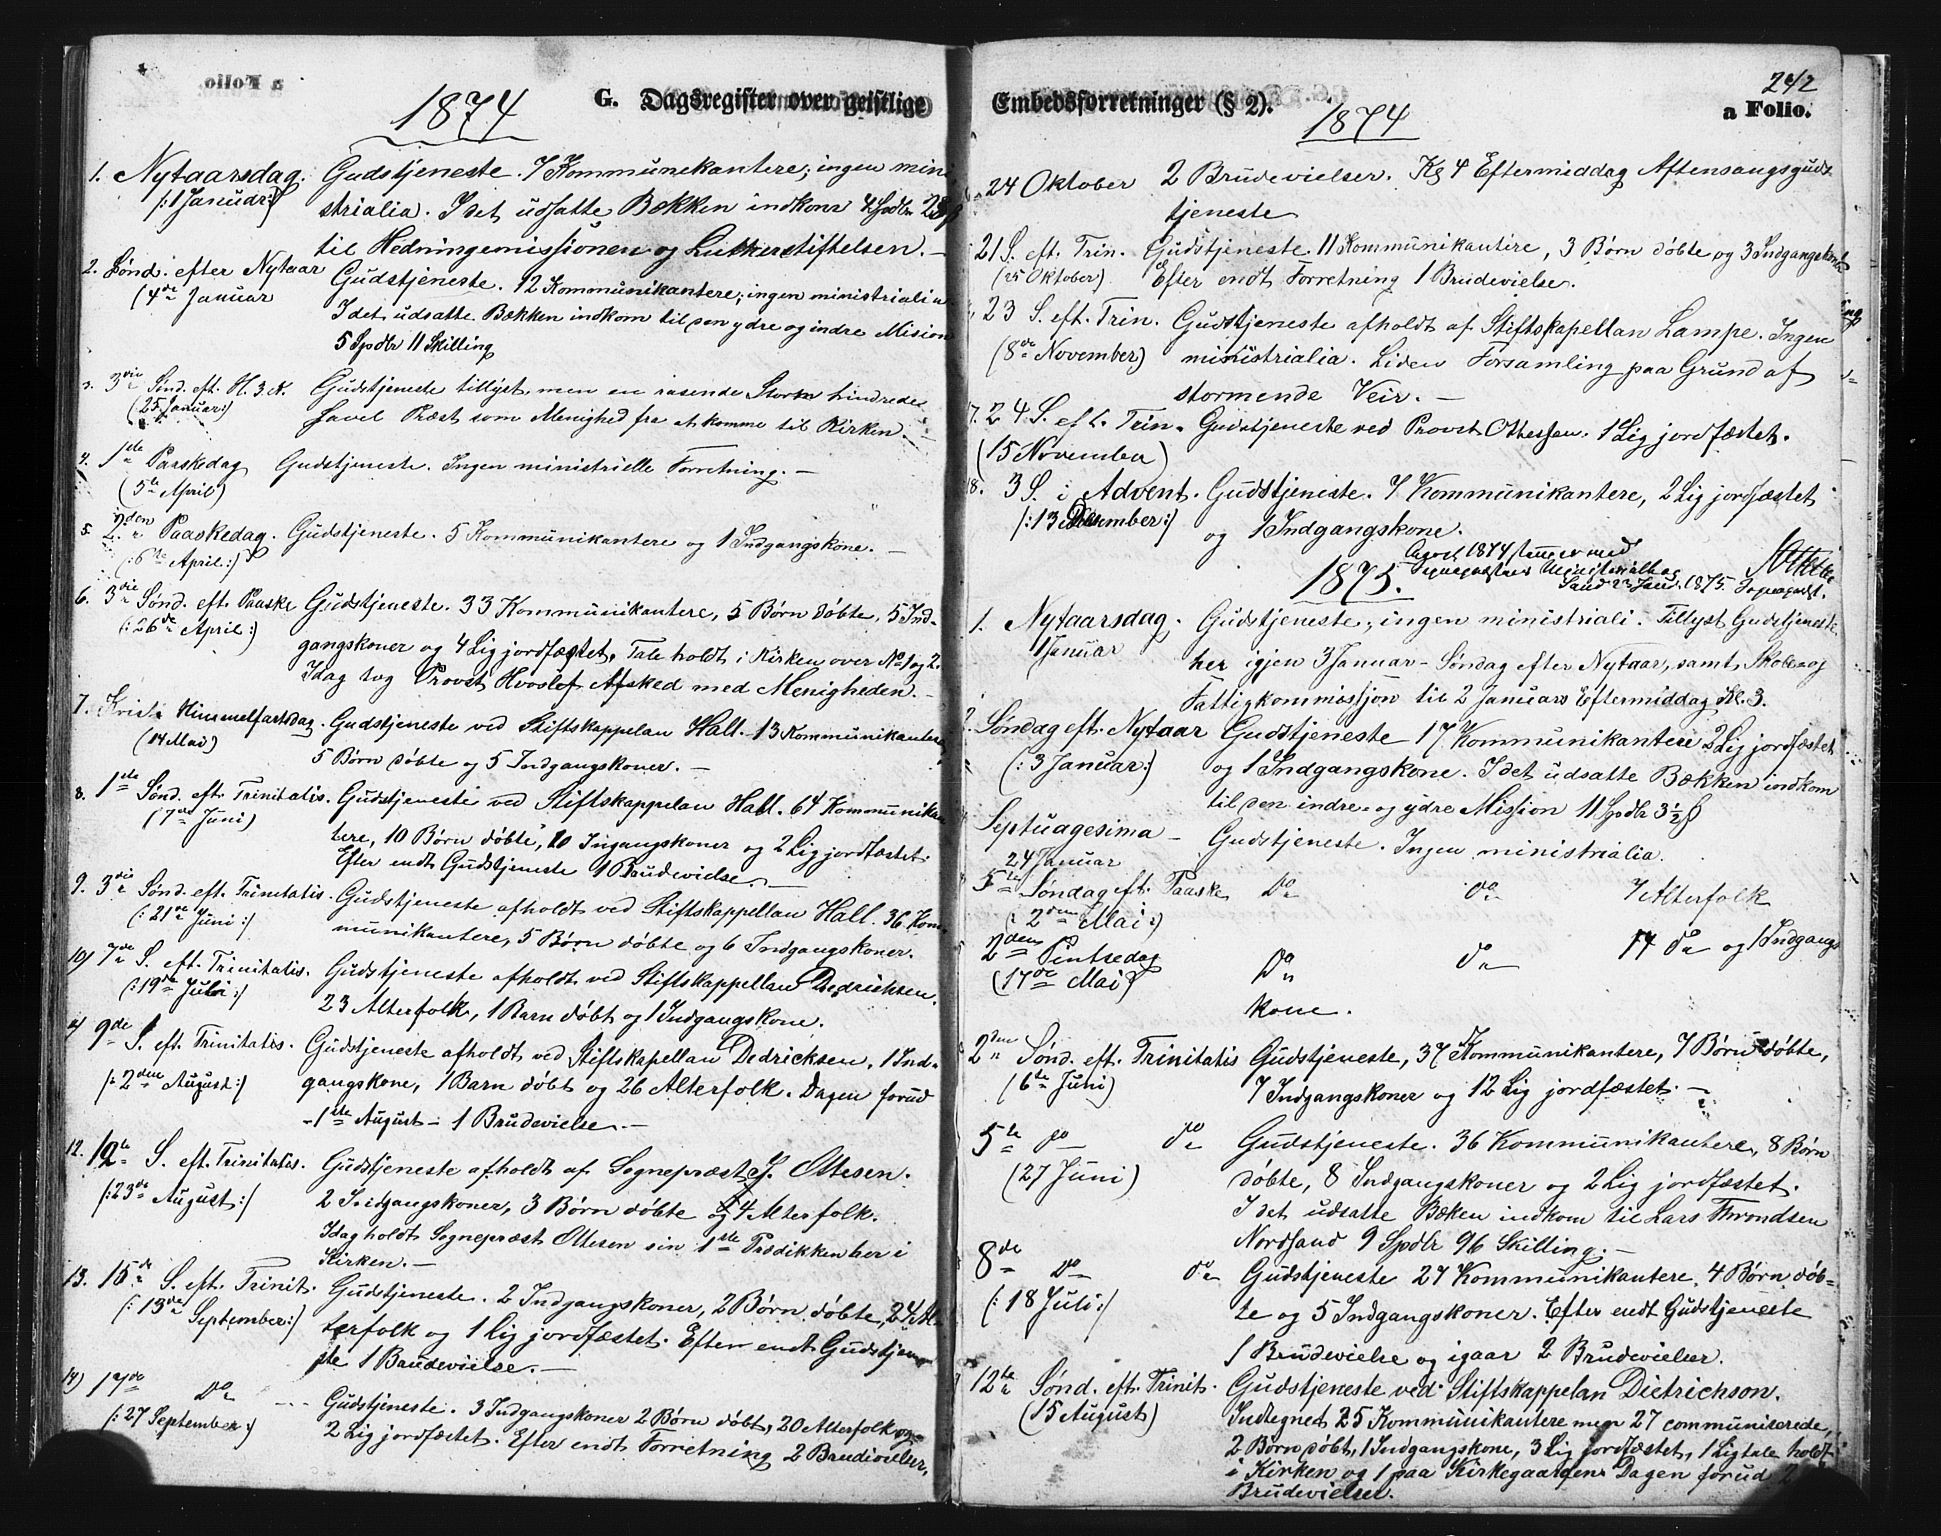 a Folio
G. Dagsregister over geistlige
1874
1. Nytaarsdag. Gudstjeneste. 7 Kommunekantere; ingen mini
(:1 Januar:) strialia. I det udsatte Bækken indkom 4 Spdlr 28 ß
til Hedningemissionen og Lutherstiftelsen. —
2. Sønd. efter Nytaar Gudstjeneste. 12 Kommunikantere; ingen ministrialia
(4de Januar I det udsatte Bækken indkom til den ydre og indre Mision
5 Spdlr 11 Skilling
3. 3die Sønd. eft. H. 3. K. Gudstjeneste tillyst, men en rasende Storm hindrede
(25 Januar:) saavel Præst som Menighed fra at komme til Kirken. —
4. 1ste Paaskedag Gudstjeneste. Ingen ministrielle Forretning. —
(5te April)
5. 2den Paaskedag. Gudstjeneste. 5 Kommunikantere og 1 Indgangskone. —
(:6te April:)
6. 3die Sønd. eft. Paaske Gudstjeneste. 33 Kommunikantere, 5 Børn døbte, 5 Ind-
(:26de April:) gangskoner og 4 Lig jordfæstet. Tale holdt i Kirken over No 1 og 2.
Idag tog Provst Hvoslef Afsked med Menigheden. —
7. Kristi Himmelfartsdag. Gudstjeneste ved Stiftskappelan Hall. 13 Kommunikantere
(14 Mai) 5 Børn døbte og 5 Indgangskoner. —
8. 1ste Sønd. eft. Trinitatis. Gudstjeneste ved Stiftskappelan Hall. 64 Kommunikan
(7de Juni) tere, 10 Børn døbte, 10 Ingangskoner og 2 Lig jordfæstet.
Efter endt Gudstjeneste 1 Brudevielse. —
9. 3die Sønd. eft. Trinitatis. Gudstjeneste afholdt ved Stiftskappellan Hall. 36 Kom-
(:21de Juni:) munikantere, 5 Børn døbte og 6 Indgangskoner.
10) 7de S. eft. Trinitatis. Gudstjeneste afholdt ved Stiftskappellan Dedricksen.
(:19de Juli:) 23 Alterfolk, 1 Barn døbt og 1 Indgangskone.
9de S. eft. Trinitatis. Gudstjeneste afholdt ved Stiftskapellan Dedricksen. 1 Ind-
(:2den August:) gangskone, 1 Barn døbt og 26 Alterfolk. Dagen forud
- 1ste August - 1 Brudevielse. —
12. 12te S. eft. Trinitatis. Gudstjeneste afholdt af Sognepræst J. Ottesen.
(:23de August:) 2 Indgangskoner, 3 Børn døbte og 4 Alterfolk.
Idag holdt Sognepræst Ottesen sin 1ste Prædikken her i
Kirken. —
13. 15de S. eft. Trinit. Gudstjeneste. 2 Indgangskoner, 2 Børn døbte, 24 Al-
(:13de September:) terfolk og 1 Lig jordfæstet. Efter endt Gudstjene
ste 1 Brudevielse. —
14) 17de Do Gudstjeneste. 3 Indgangskoner 2 Børn døbt, 20 Alterfolk og
(:27 September:) 2 Lig jordfæstet. Efter endt Forretning 2 Brudevielser.
Embedsforretninger (§ 2).
242
a Folio.
1874
24 Oktober 2 Brudevielser. Kl 4 Eftermiddag Aftensangsguds
tjeneste
21 S. eft. Trin. Gudstjeneste. 11 Kommunikantere, 3 Børn døbte og 3 Indgangskoner
(25 Oktober) Efter endt Forretning 1 Brudevielse.
23 S. eft. Trin. Gudstjeneste afholdt af Stiftskapellan Lampe. Ingen
(8de November) ministrialia. Liden Forsamling paa Grund af
stormende Veir. —
17. 24 S. eft. Trin. Gudstjeneste ved Provst Ottessen. 1 Lig jordfæstet.
(15 November)
18. 3 S. i Advent. Gudstjeneste. 7 Kommunikantere, 2 Lig jordfæstet
(:13 December:) og 1 Indgangskone.
1875.
1. Nytaarsdag. Gudstjeneste; ingen ministriali. Tillyst Gudstjeneste
1 Januar her igjen 3 Januar - Søndag efter Nytaar, samt Skole og
Fattigkommissjon til 2 Januars Eftermiddag Kl. 3.
Søndag eft. Nytaar Gudstjeneste 17 Kommunikantere 2 Lig jordfæstet
(:3 Januar:) og 1 Indgangskone. I det udsatte Bækken indkom
til den indre og ydre Mission 11 Spdlr 3½ ß
Septuagesima — Gudstjeneste. Ingen ministrialia.
24 Januar
5te Søndag eft. Paaske Do do 7 Alterfolk
(2den Mai:)
2den Pintsedag Do do 14 do og 1 Indgangs
(17de Mai) kone.
2den Sønd. eft. Trinitatis Gudstjeneste, 37 Kommunikantere, 7 Børn døbte,
(6te Juni) 7 Indgangskoner og 12 Lig jordfæstet. —
5te do do Gudstjeneste. 36 Kommunikantere, 8 Børn
(27 Juni) døbte, 8 Indgangskoner og 2 Lig jordfæstet.
I det udsatte Bæken indkom til Lars Throndsen
Nordsand 9 Spdlr 96 Skilling. —
8de Do do Gudstjeneste 27 Kommunikantere, 4 Børn døb-
(:18 Juli:) te og 5 Indgangskoner. Efter endt Gudstjeneste
1 Brudevielse og igaar 2 Brudevielser.
12te Sønd. eft. Trinit. Gudstjeneste ved Stiftskappelan Dietrichson.
(15 August) Indtegnet 25 Kommunikantere men 27 communiserede,
2 Børn døbt, 1 Indgangskone, 3 Lig jordfæstet, 1 Ligtale holdt
i Kirken og 1 paa Kirkegaarden. Dagen forud 2
Brudevielser.